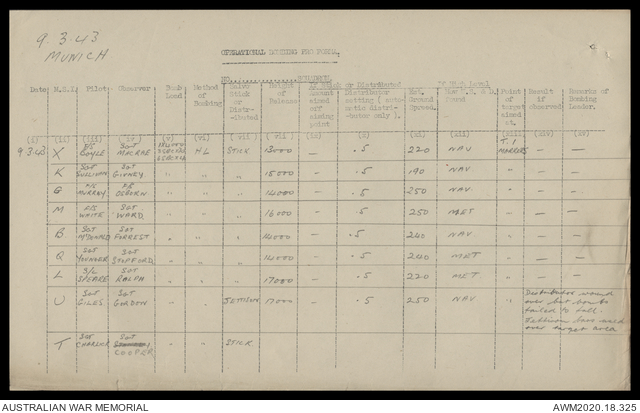 9.3.43
MUNICH
OPERATIONAL BOMBING PRO FORMA.
NO. SQUADRON.
Date M.O.I. Pilot Observer Bomb Load Method of Bombing Salvo Stick or Distributed Height of Release If Stick or Distributed Amount aimed off aiming point Distributor setting (automatic distributor only). Est. Ground Speed. Point of target aimed at. Result if observed. Remarks of Bombing Leader.
(i) (ii) (iii) (iv) (v) (vi) (vii)
9.3.43 X BOYLE Sgt MACRAE HL STICK 13000 — .5 220 NAV T.I MARKERS — —
K Sgt SULLIVAN Sgt GIVNEY " " " 15000 — .5 190 NAV " — —
G F/S MURRAY OSBORN " " " 14000 — .5 250 NAV " — —
M F/S WHITE Sgt WARD " " " 16000 — .5 250 MET " — —
B Sgt McDONALD Sgt FORREST " " " 14000 — .5 240 NAV " — —
Q Sgt YOUNGER Sgt STOFFORD " " " 14000 — .5 240 MET " — —
L S/L SPEARE Sgt RALPH " " " 17000 — .5 220 MET " — —
U Sgt GILES Sgt GORDON " " JETTISON 17000 — .5 250 NAV " Distributor wound over but bombs failed to fall. Jettison bars used over target area
T Sgt CHARLICK Sgt COOPER " " STICK
AUSTRALIAN WAR MEMORIAL
AWM2020.18.325